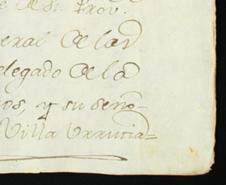 de su Prov.
eral de las
elegado de la
os, y su seño-
Villa Urrutia=